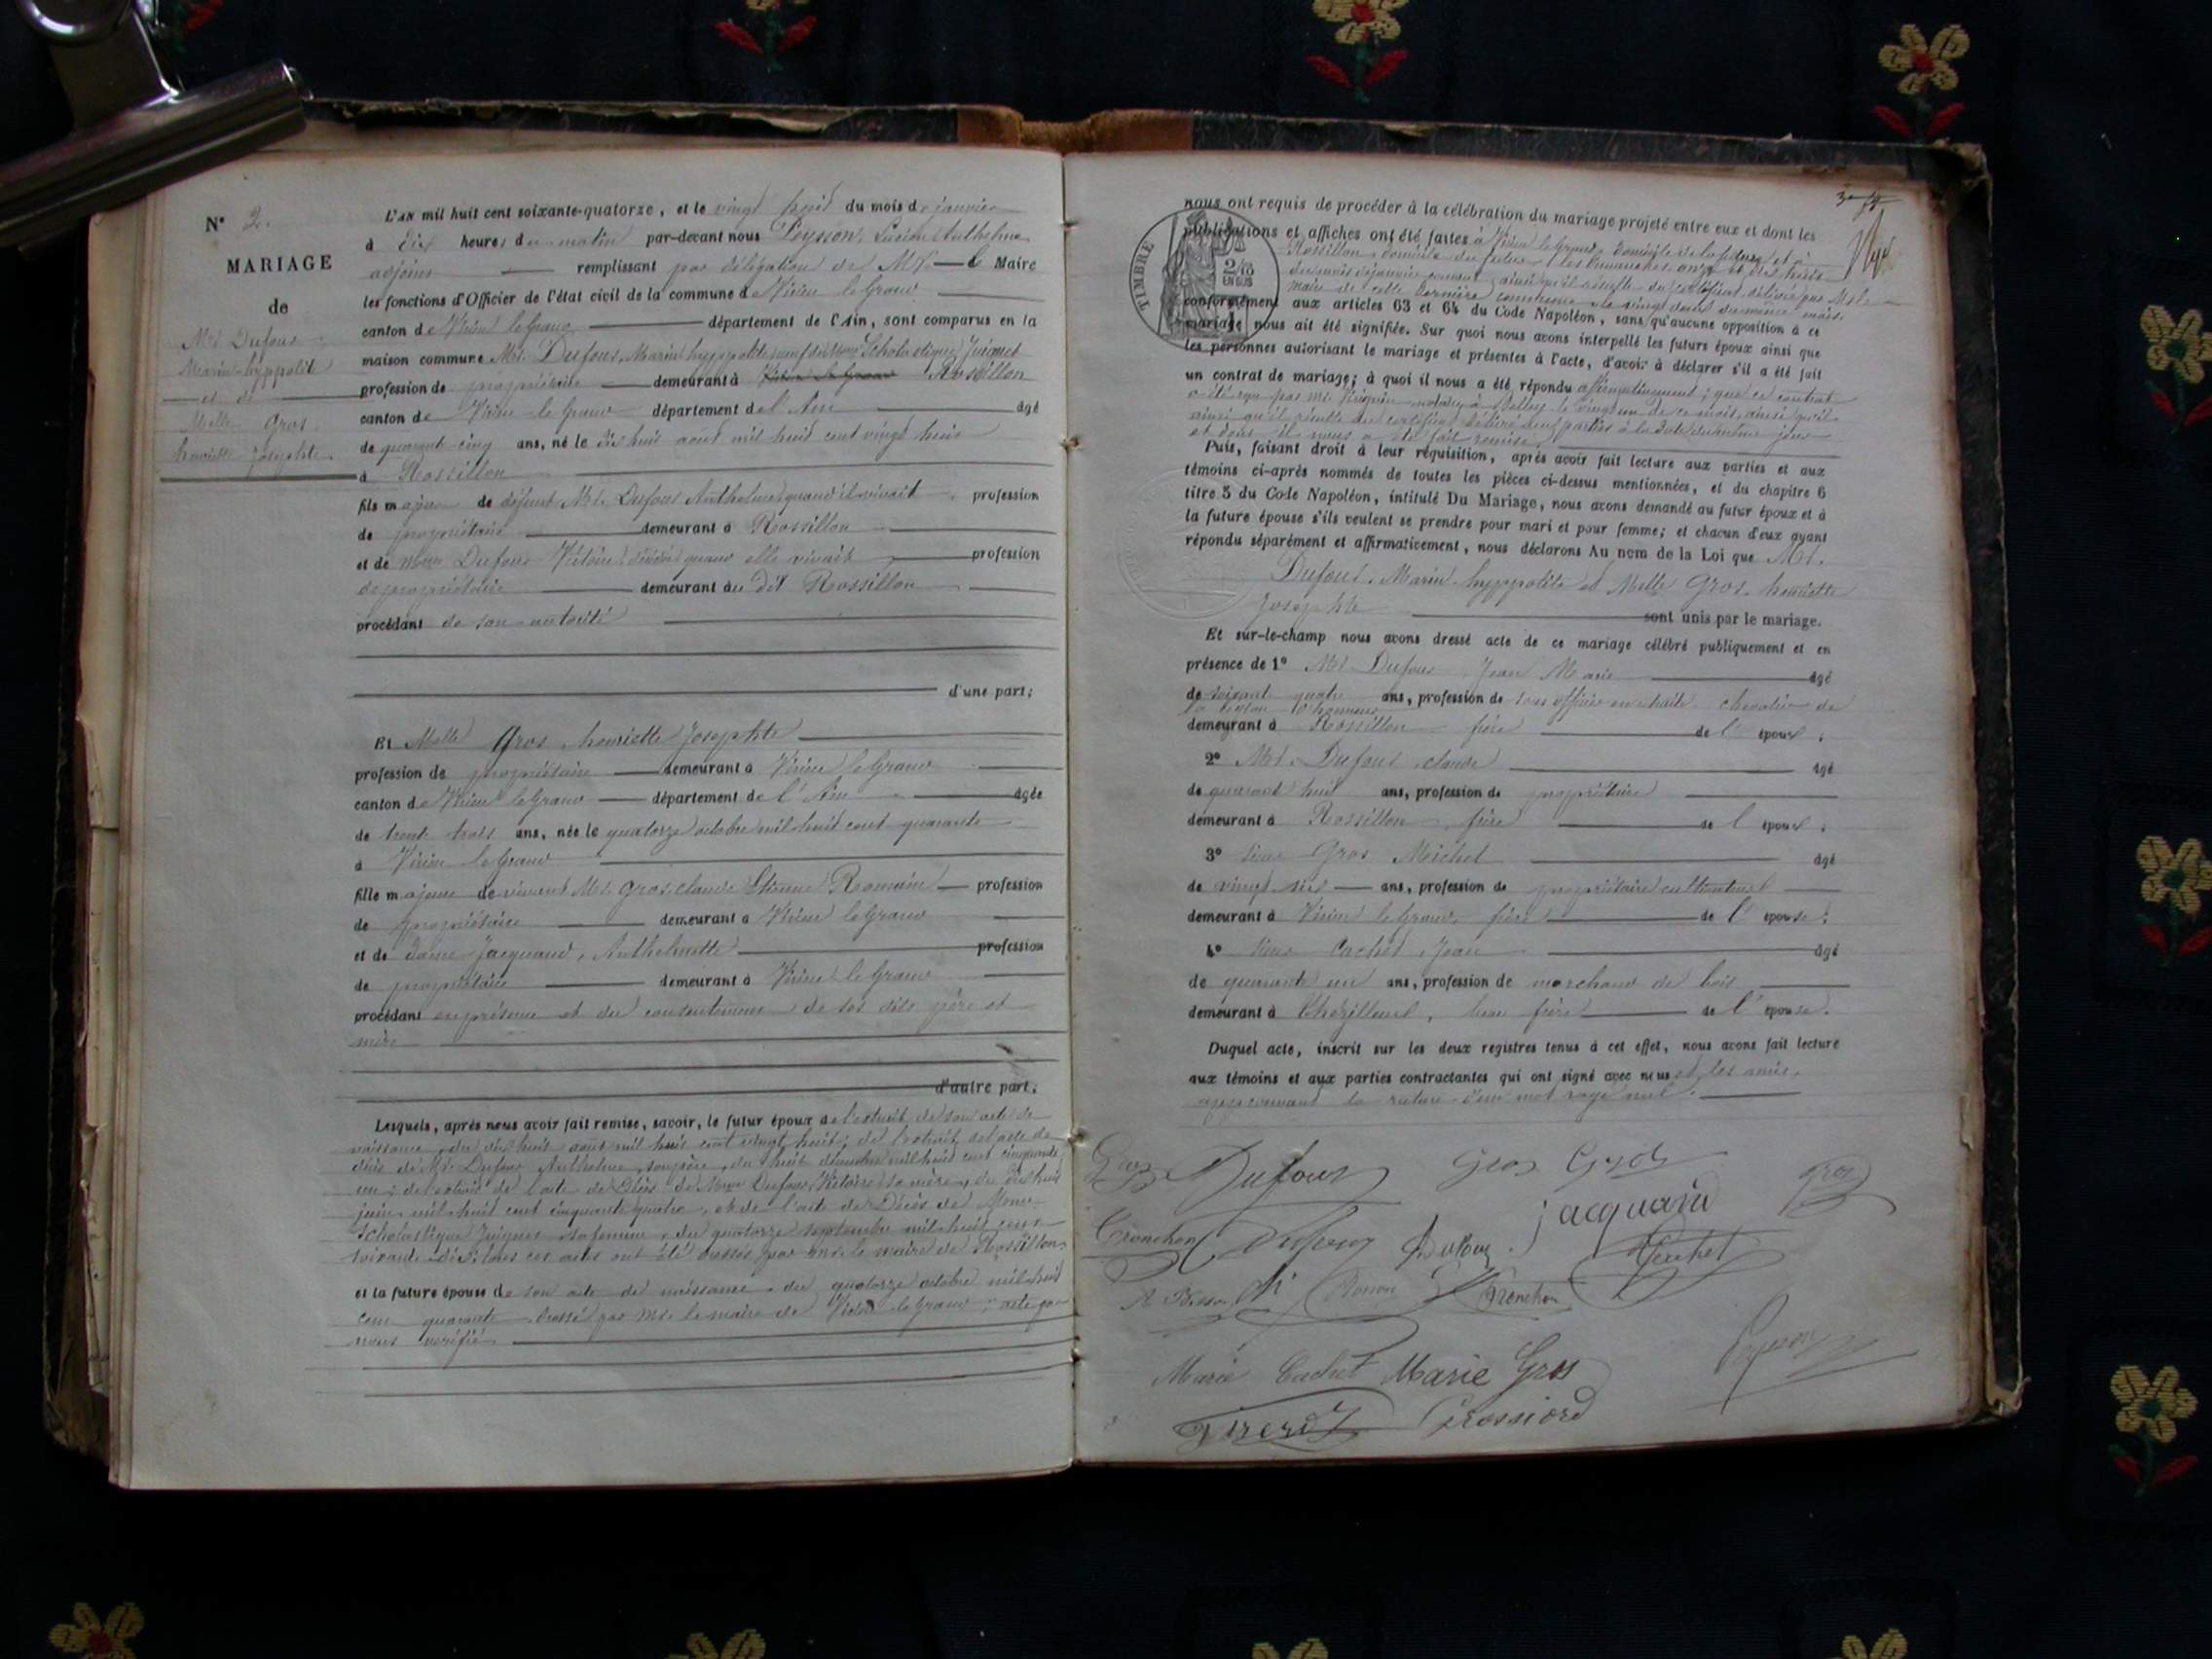 N° 2.
MARIAGE
de
Mr. Dufour
Marin hyppolite
et de
Melle Gros
henriette josephte.
L'AN mil huit cent soixante-quatorze, et le vingt trois du mois de janvier
à dix heures du matin par-devant nous Peysson, Lucien Anthelme
adjoint remplissant par délégation de Mr le Maire
les fonctions d'Officier de l'état civil de la commune de Virieu le Grand
canton de Virieu le Grand département de l'Ain, sont comparus en la
maison commune Mr. Dufour, Marin hyppolite, veuf de Scholastique Juignet
profession de propriétaire demeurant à Virieu le Grand Rossillon
canton de Virieu le Grand département de l'Ain âgé
de quarante cinq ans, né le dix huit aout mil huit cent vingt huit
à Rossillon
fils majeur de défunt Mr. Dufour Anthelme, quand il vivait profession
de propriétaire demeurant à Rossillon
et de Dufour Victoire, décédée quand elle vivait profession
de propriétaire demeurant au dit Rossillon
procédant de son autorité
d'une part;
Et Melle Gros henriette Josephte
profession de propriétaire demeurant à Virieu le Grand
canton de Virieu le Grand département de l'Ain âgée
de trente trois ans, née le quatorze octobre mil huit cent quarante
à Virieu le Grand
fille majeure de vivant Mr. Gros, Claude Etienne Romain profession
de propriétaire demeurant à Virieu le Grand
et de dame Jacquand, Anthelmette profession
de propriétaire demeurant à Virieu le Grand
procédant en présence et du consentement de ses dits père et
mère
d'autre part.
Lesquels, après nous avoir fait remise, savoir, le futur époux de l'extrait de son acte de
naissance, du dix huit aout mil huit cent vingt huit; de l'extrait de l'acte de
décès de Mr. Dufour Anthelme, son père, du huit décembre mil huit cent cinquante
un; de l'extrait de l'acte de décès de Dufour Victoire sa mère, du dix huit
juin mil huit cent cinquante quatre, et de l'acte de Décès de
Scholastique Juignet sa femme, du quatorze septembre mil huit cent
soixante dix; tous ces actes ont été dressés par Mr. le maire de Rossillon
et la future épouse de son acte de naissance du quatorze octobre mil huit
cent quarante dressé par Mr. le maire de Virieu le Grand; acte par
nous vérifié
nous ont requis de procéder à la célébration du mariage projeté entre eux et dont les
publications et affiches ont été faites à Virieu le Grand, domicile de la future et à
Rossillon, domicile du futur, les Dimanches onze et dix huit
du mois de janvier courant, ainsi qu'il résulte du certificat délivré par Mr le
maire de cette dernière commune le vingt deux du même mois.
conformément aux articles 63 et 64 du Code Napoléon, sans qu'aucune opposition à ce
mariage nous ait été signifiée. Sur quoi nous avons interpellé les futurs époux ainsi que
les personnes autorisant le mariage et présentes à l'acte, d'avoir à déclarer s'il a été fait
un contrat de mariage; à quoi il nous a été répondu affirmativement; que ce contrat
a été reçu par Me notaire à Belley le vingt un de ce mois, ainsi qu'il
ainsi qu'il résulte du certificat délivré aux parties à la date du même jour
et dont il nous a été fait remise
Puis, faisant droit à leur réquisition, après avoir fait lecture aux parties et aux
témoins ci-après nommés de toutes les pièces ci-dessus mentionnées, et du chapitre 6
titre 5 du Code Napoléon, intitulé Du Mariage, nous avons demandé au futur époux et à
la future épouse s'ils veulent se prendre pour mari et pour femme; et chacun d'eux ayant
répondu séparément et affirmativement, nous déclarons Au nom de la Loi que Mr.
Dufour, Marin hyppolite et Melle Gros, henriette
Josephte sont unis par le mariage.
Et sur-le-champ nous avons dressé acte de ce mariage célébré publiquement et en
présence de 1° Mr. Dufour Jean Marie âgé
de soixante quatre ans, profession de sous officier en retraite, chevalier de
la Légion d'honneur
demeurant à Rossillon frère de l'époux;
2° Mr. Dufour, claude âgé
de quarante huit ans, profession de propriétaire
demeurant à Rossillon, frère de l'époux;
3° sieur Gros Michel âgé
de vingt six ans, profession de propriétaire cultivateur
demeurant à Virieu le Grand, frère de l'épouse;
4° sieur Cachet, Jean âgé
de quarante un ans, profession de marchand de bois
demeurant à Chézilleux, beau frère de l'épouse.
Duquel acte, inscrit sur les deux registres tenus à cet effet, nous avons fait lecture
aux témoins et aux parties contractantes qui ont signé avec nous et les amis,
approuvant la rature d'un mot rayé nul.
TIMBRE
2/10
EN SUS
Gros Dufour Gros Gros
jacquand
Tronchon Dufour Dufour Cachet
Tronchon
Marie Cachet Marie Gros
Peysson
Crossiord